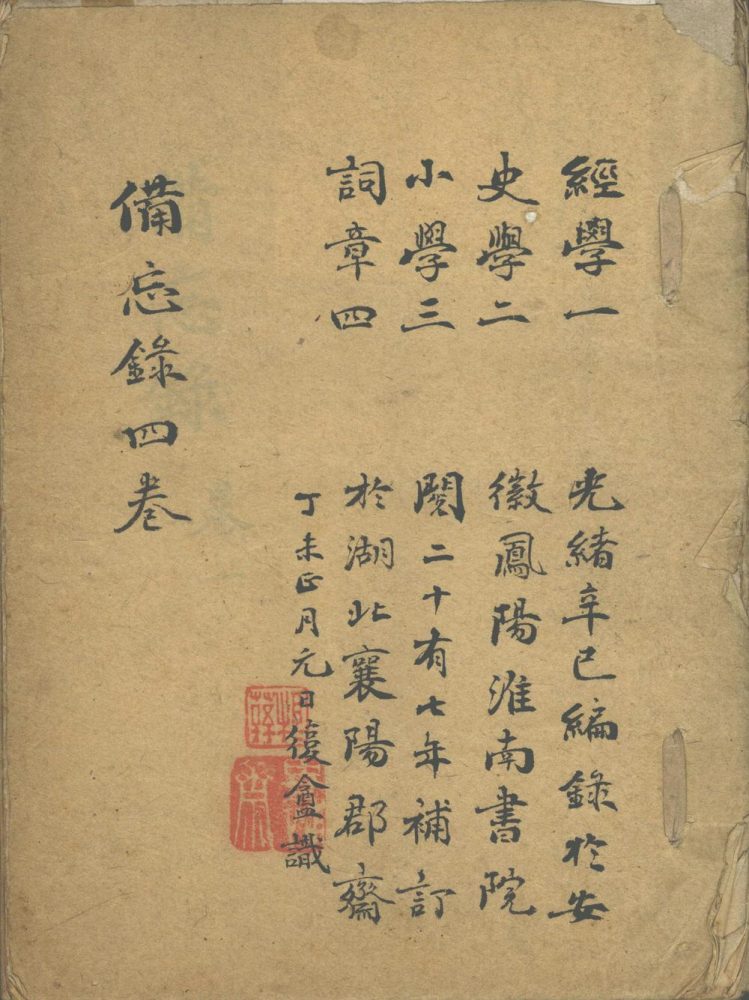 經學一
史學二
小學三
詞章四
光緒辛巳編錄於安
徽鳳陽淮南書院
閱二十有七年補訂
於湖北襄陽郡齋
丁未正月元日復盦識
備忘錄四卷